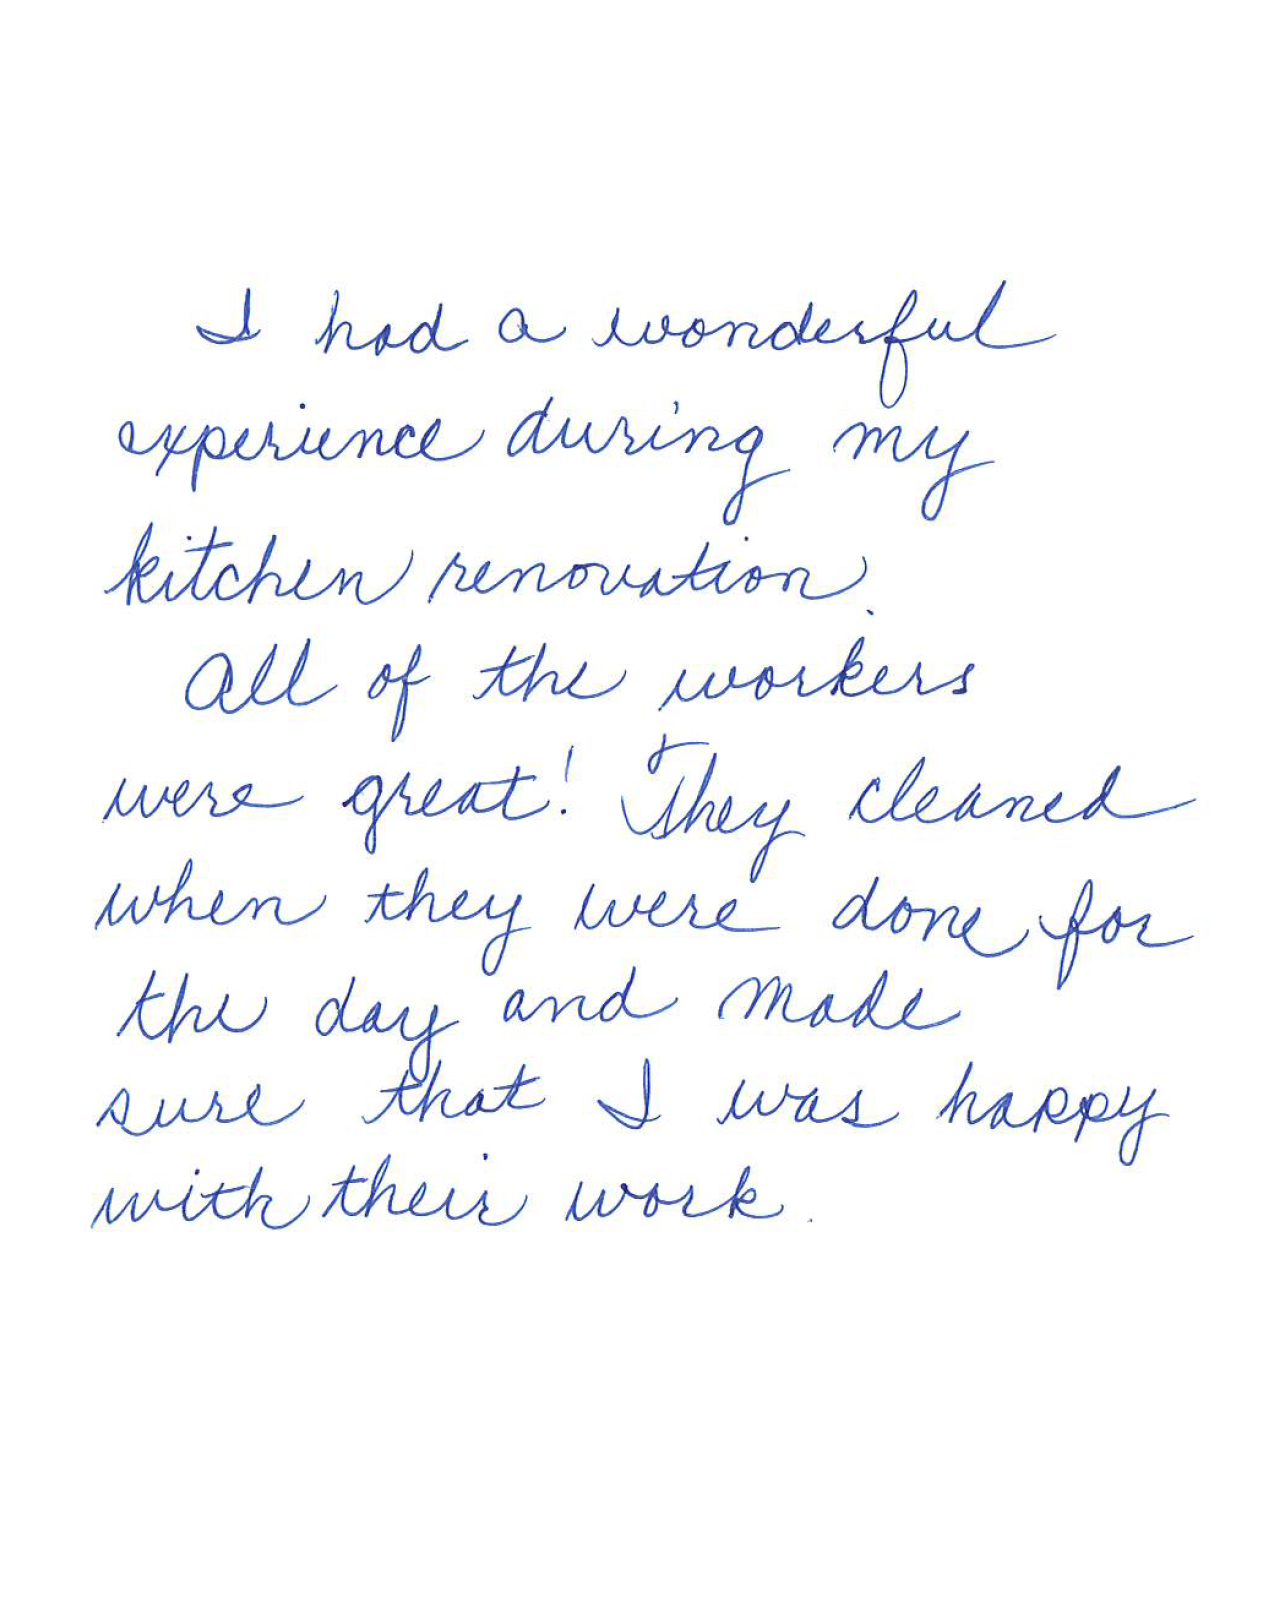 I had a wonderful
experience during my
kitchen renovation.
All of the workers
were great! They cleaned
when they were done for
the day and made
sure that I was happy
with their work.